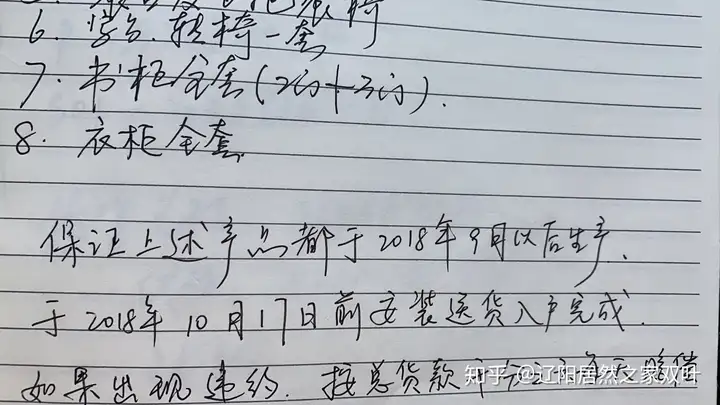 6. 写台.转椅一套
7. 书柜全套(2门+3门).
8. 衣柜全套
保证上述产品都于2018年9月以后生产.
于2018年10月17日前安装送货入户完成.
如果出现违约.按总货款千分之
知乎 @辽阳居然之家双叶